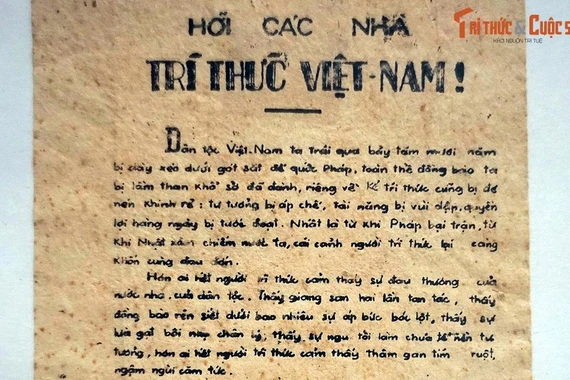 TRI THỨC & CUỘC S
KHƠI NGUỒN TRI TUỆ
HỠI CÁC NHÀ
TRÍ THỨC VIỆT-NAM!
Dân tộc Việt-Nam ta trải qua bảy tám mươi năm
bị dày xéo dưới gót sắt đế quốc Pháp, toàn thể đồng bào ta
bị lầm than khổ sở đã đành, riêng về kẻ trí thức cũng bị đè
nén khinh rẻ: tư tưởng bị áp chế, tài năng bị vùi dập, quyền
lợi hàng ngày bị tước đoạt. Nhất là từ khi Pháp bại trận, từ
khi Nhật xâm chiếm nước ta, cái cảnh người trí thức lại càng
khốn cùng đau đớn.
Hơn ai hết người trí thức cảm thấy sự đau thương của
nước nhà, của dân tộc. Thấy giang san hai lần tan tác, thấy
đồng bào rên siết dưới bao nhiêu sự áp bức bóc lột, thấy sự
lừa gạt bôi nhọ chân lý, thấy sự ngu tối làm chưa tể nền tư
tưởng, hơn ai hết người trí thức cảm thấy thâm gan tím ruột,
ngậm ngùi căm tức.